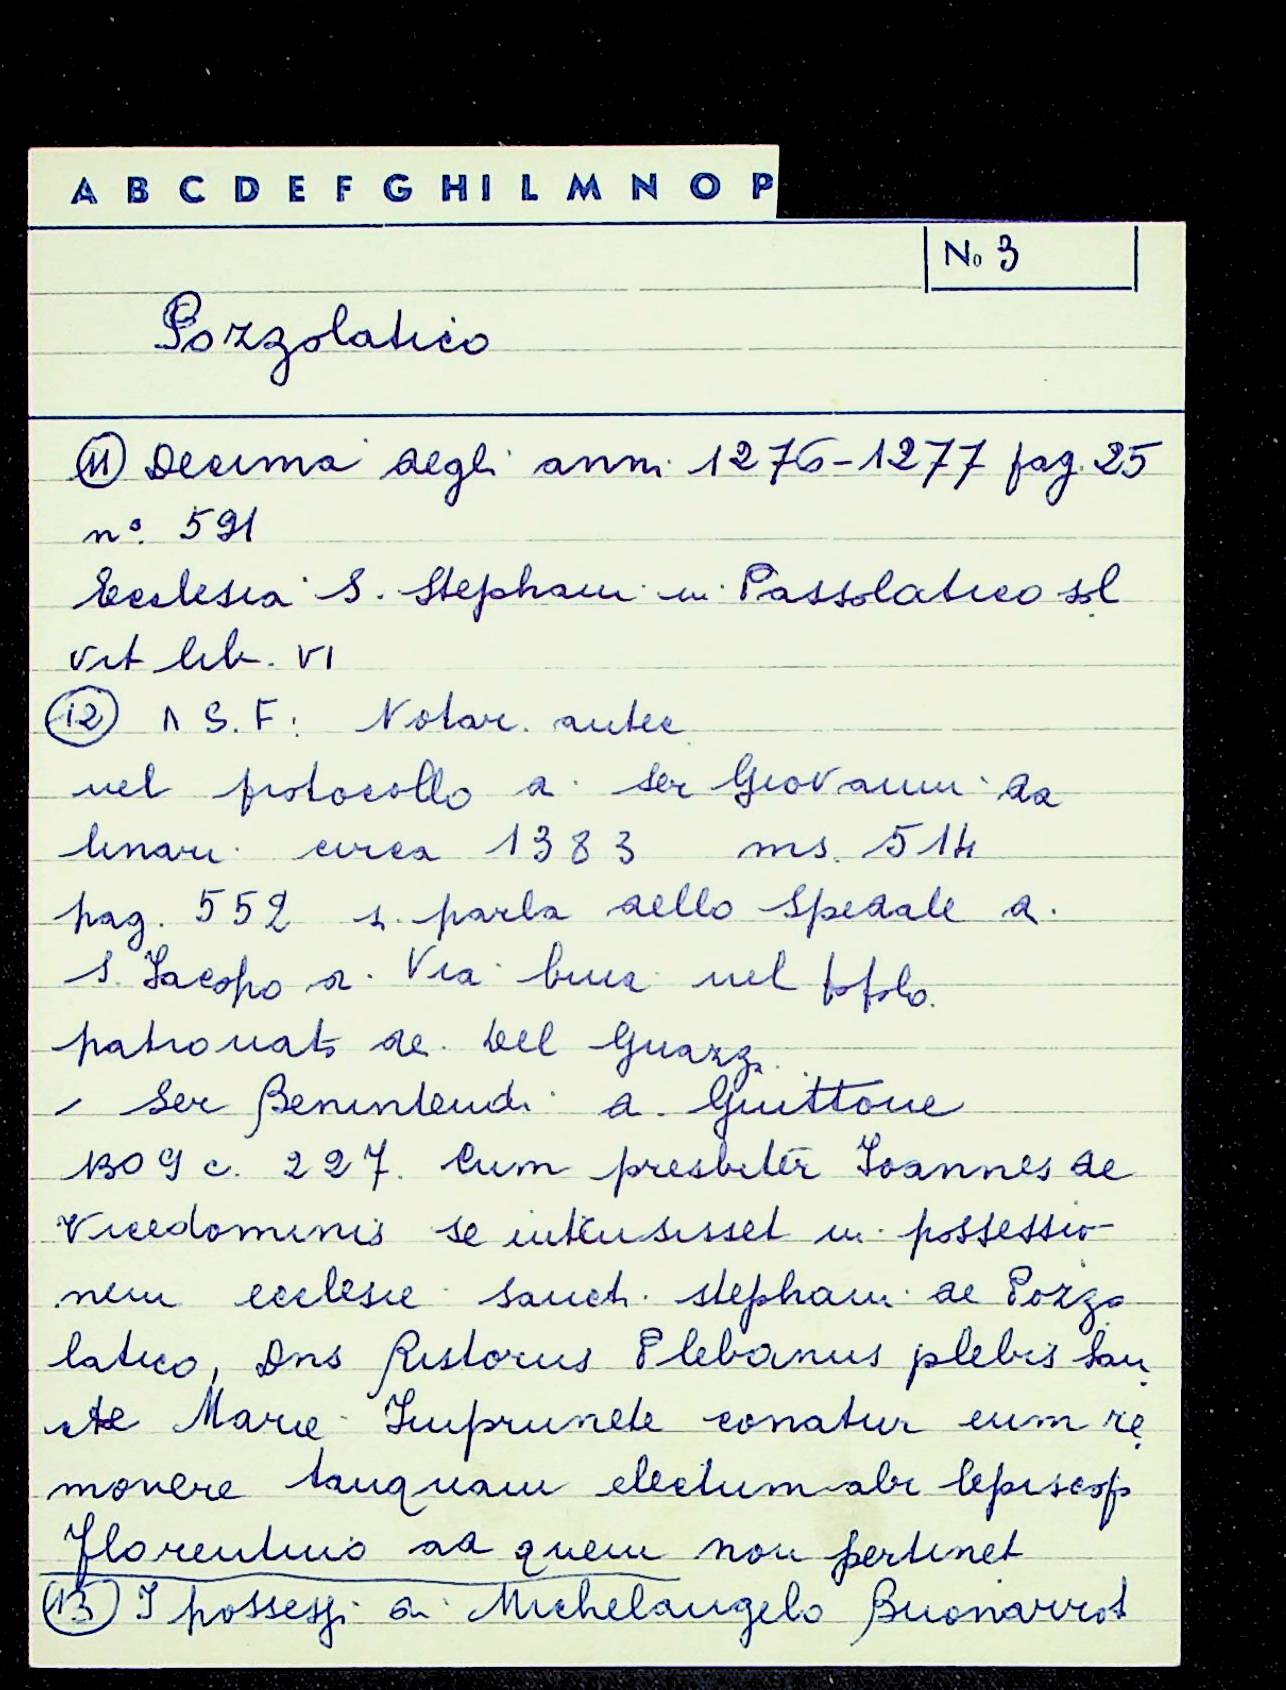 A B C D E F G H I L M N O P
No 3
Pozzolatico
(11) Decima degli anni 1276-1277 pag. 25
n°. 591
Ecclesia S. Stephani in Passolatico sol
vit lib. VI
(12) A S. F: Notar. antec
nel protocollo di ser Giovanni da
linari circa 1383 ms. 514
pag. 552 si parla dello Spedale di
S. Jacopo di Via buia nel popolo.
patronato de. Del Guazzi
- Ser Benintendi di Guittone
1309 c. 227. Cum presbiter Joannes de
Vicedominis se intrusisset in possessio-
nem ecclesie sancti stephani de Pozzo
latico, Dns Ristorus Plebanus plebis San
cte Marie Imprunete conatur eum re
movere tanquam electum ab Episcop
Florentino ad quem non pertinet
(13) I possessi di Michelangelo Buonarrot